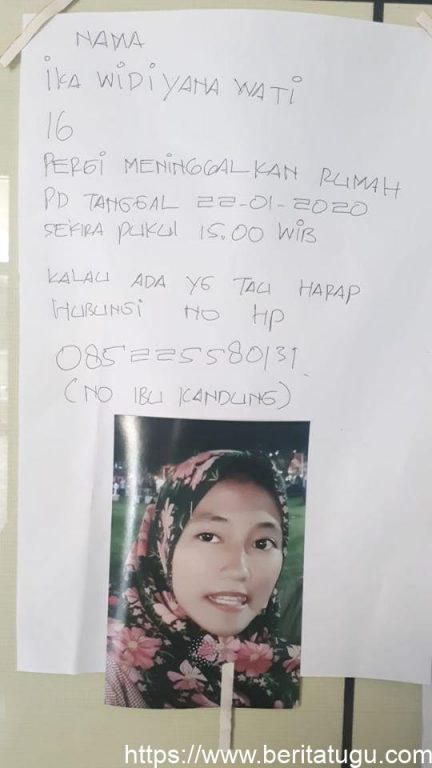 NAMA
iKA WiDiYANA WATi
16
PERGi MENiNGGALKAN RUMAH
PD TANGGAL 22-01-2020
SEKiRA PUKUl 15.00 WiB
KALAU ADA YG TAU HARAP
HUBUNGi NO HP
085225580131
(NO IBU KANDUNG)
https://www.beritatugu.com